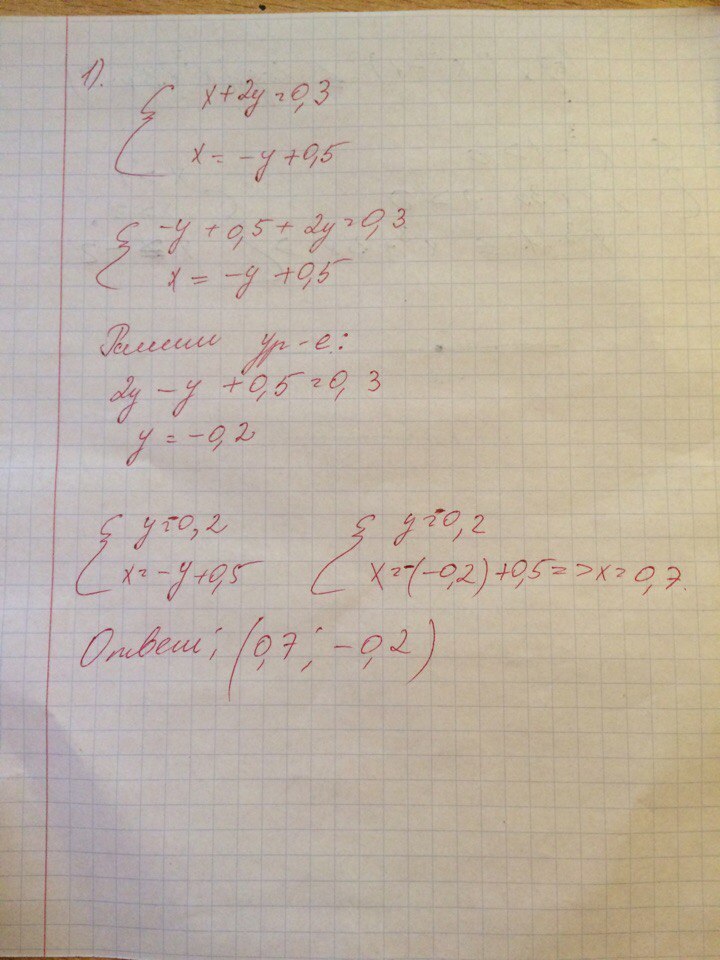 1).
x+2y=0,3
x=-y+0,5
-y+0,5+2y=0,3
x=-y+0,5
Решим ур-е:
2y-y+0,5=0,3
y=-0,2
y=-0,2 y=-0,2
x=-y+0,5 x=-(-0,2)+0,5=>x=0,7.
Ответ: (0,7; -0,2)